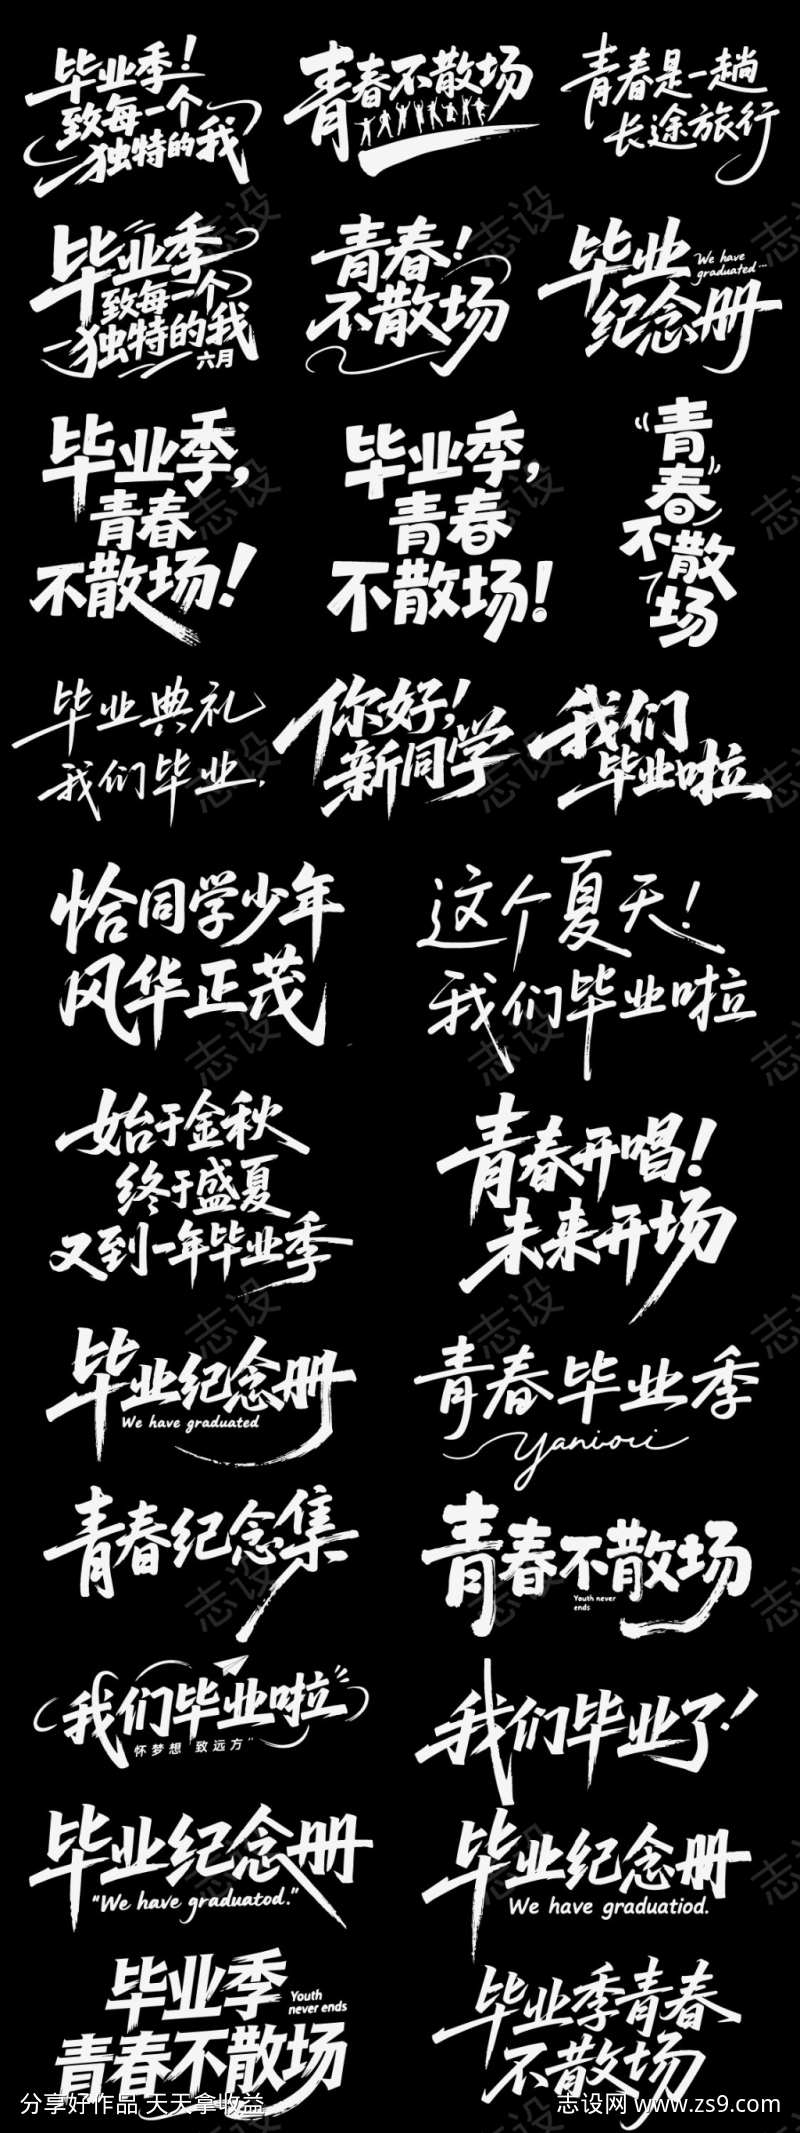 毕业季！
致每一个
独特的我
青春不散场
青春是一趟
长途旅行
毕业季
致每一个
独特的我
六月
青春！
不散场
毕业
We have
graduated...
纪念册
毕业季，
青春
不散场！
毕业季，
青春
不散场！
“青
春”
不散
场
毕业典礼
我们毕业.
你好！
新同学
我们
毕业啦
恰同学少年
风华正茂
这个夏天！
我们毕业啦
始于金秋
终于盛夏
又到一年毕业季
青春开唱！
未来开场
毕业纪念册
We have graduated
青春毕业季
青春纪念集
青春不散场
Youth never
ends
我们毕业啦
怀梦想 致远方"
我们毕业了！
毕业纪念册
"We have graduatod."
毕业纪念册
We have graduatiod.
毕业季
Youth
never ends
青春不散场
毕业季青春
不散场
分享好作品 天天拿收益
志设网 www.zs9.com
志设